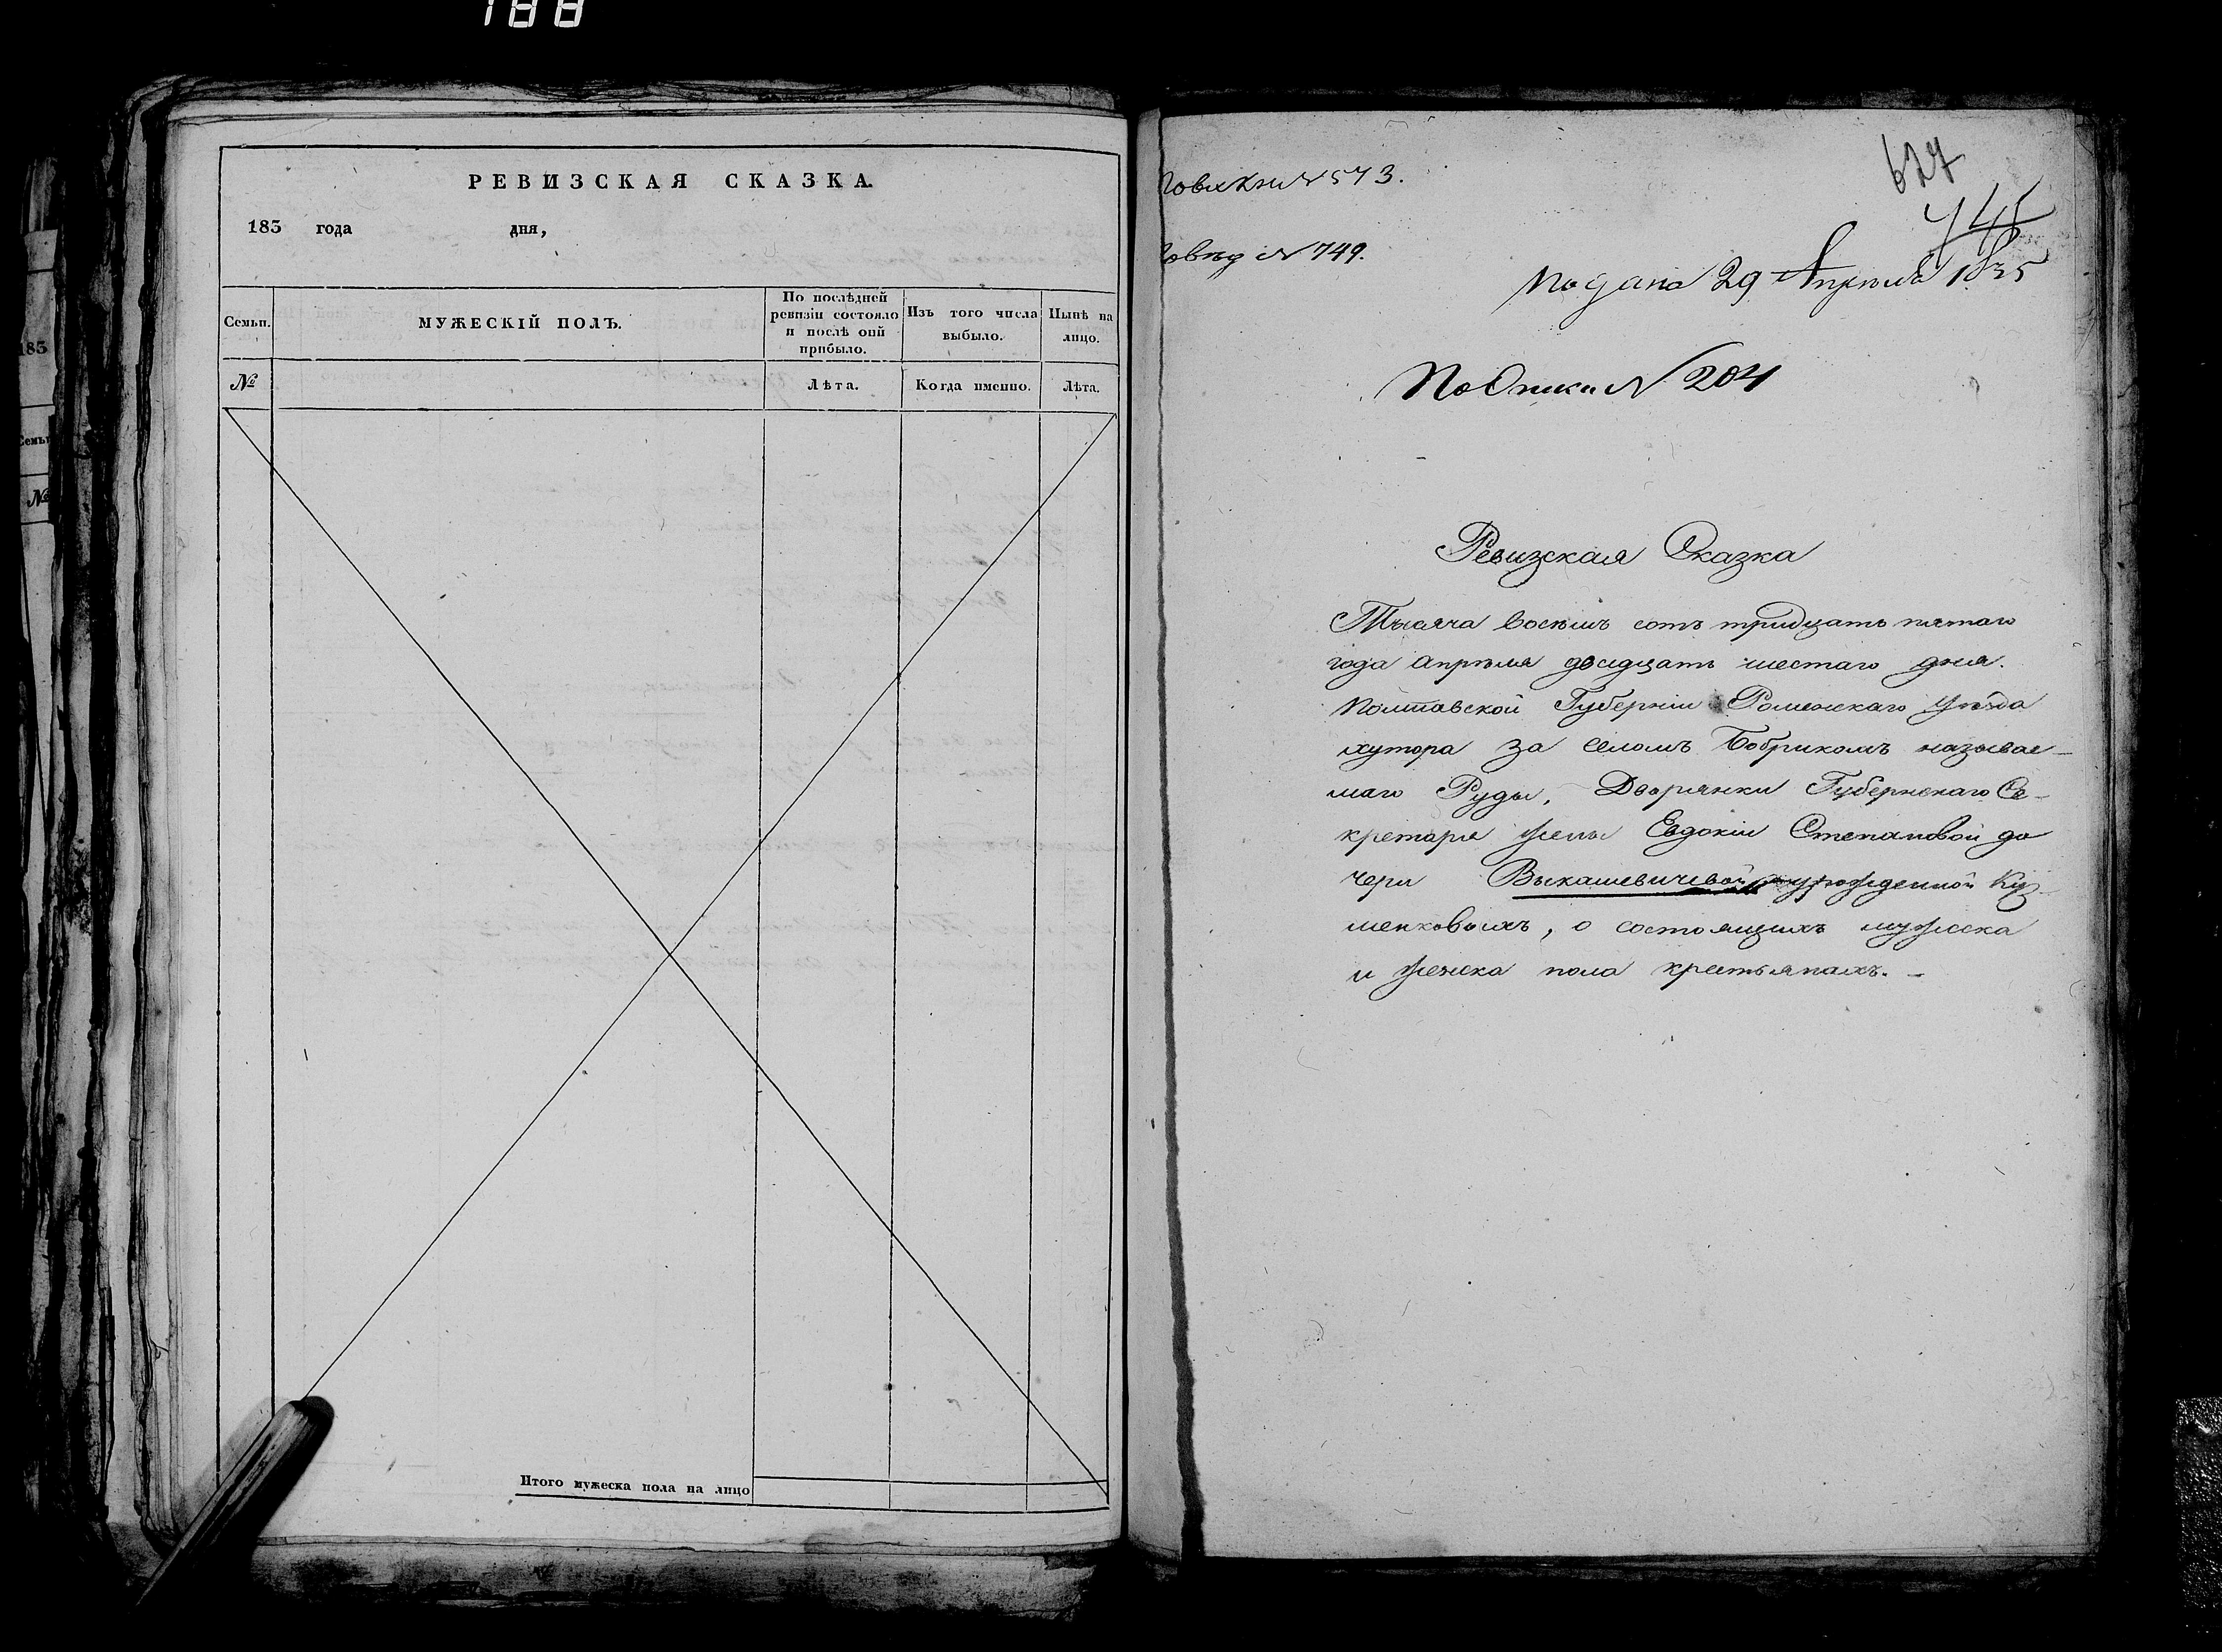 188
РЕВИЗСКАЯ СКАЗКА.
183 года дня,
Семьи. МУЖЕСКІЙ ПОЛЪ. По послѣдней ревизіи состояло и послѣ оній прибыло. Изъ того числа выбыло. Нынѣ на лицо.
№ Лѣта. Когда именно. Лѣта.
Итого мужеска пола на лицо
183
Семьи
№
627
N 573.
745
N 749.
Подана 29 Апрѣля 1835
По Описи N 204
Ревизская Сказка
Тысяча восемъ сотъ тридцать пятаго
года апрѣля двадцать шестаго дня.
Полтавской Губерніи Роменскаго уѣзда
хутора за селомъ Бобрикомъ называе-
маго Руды, Дворянки Губернскаго Се-
кретаря жены Евдокіи Степановой до
чери Выкашевичевой урожденной Куз-
менковыхъ, о состоящихъ мужеска
и женска пола крестьянахъ. -